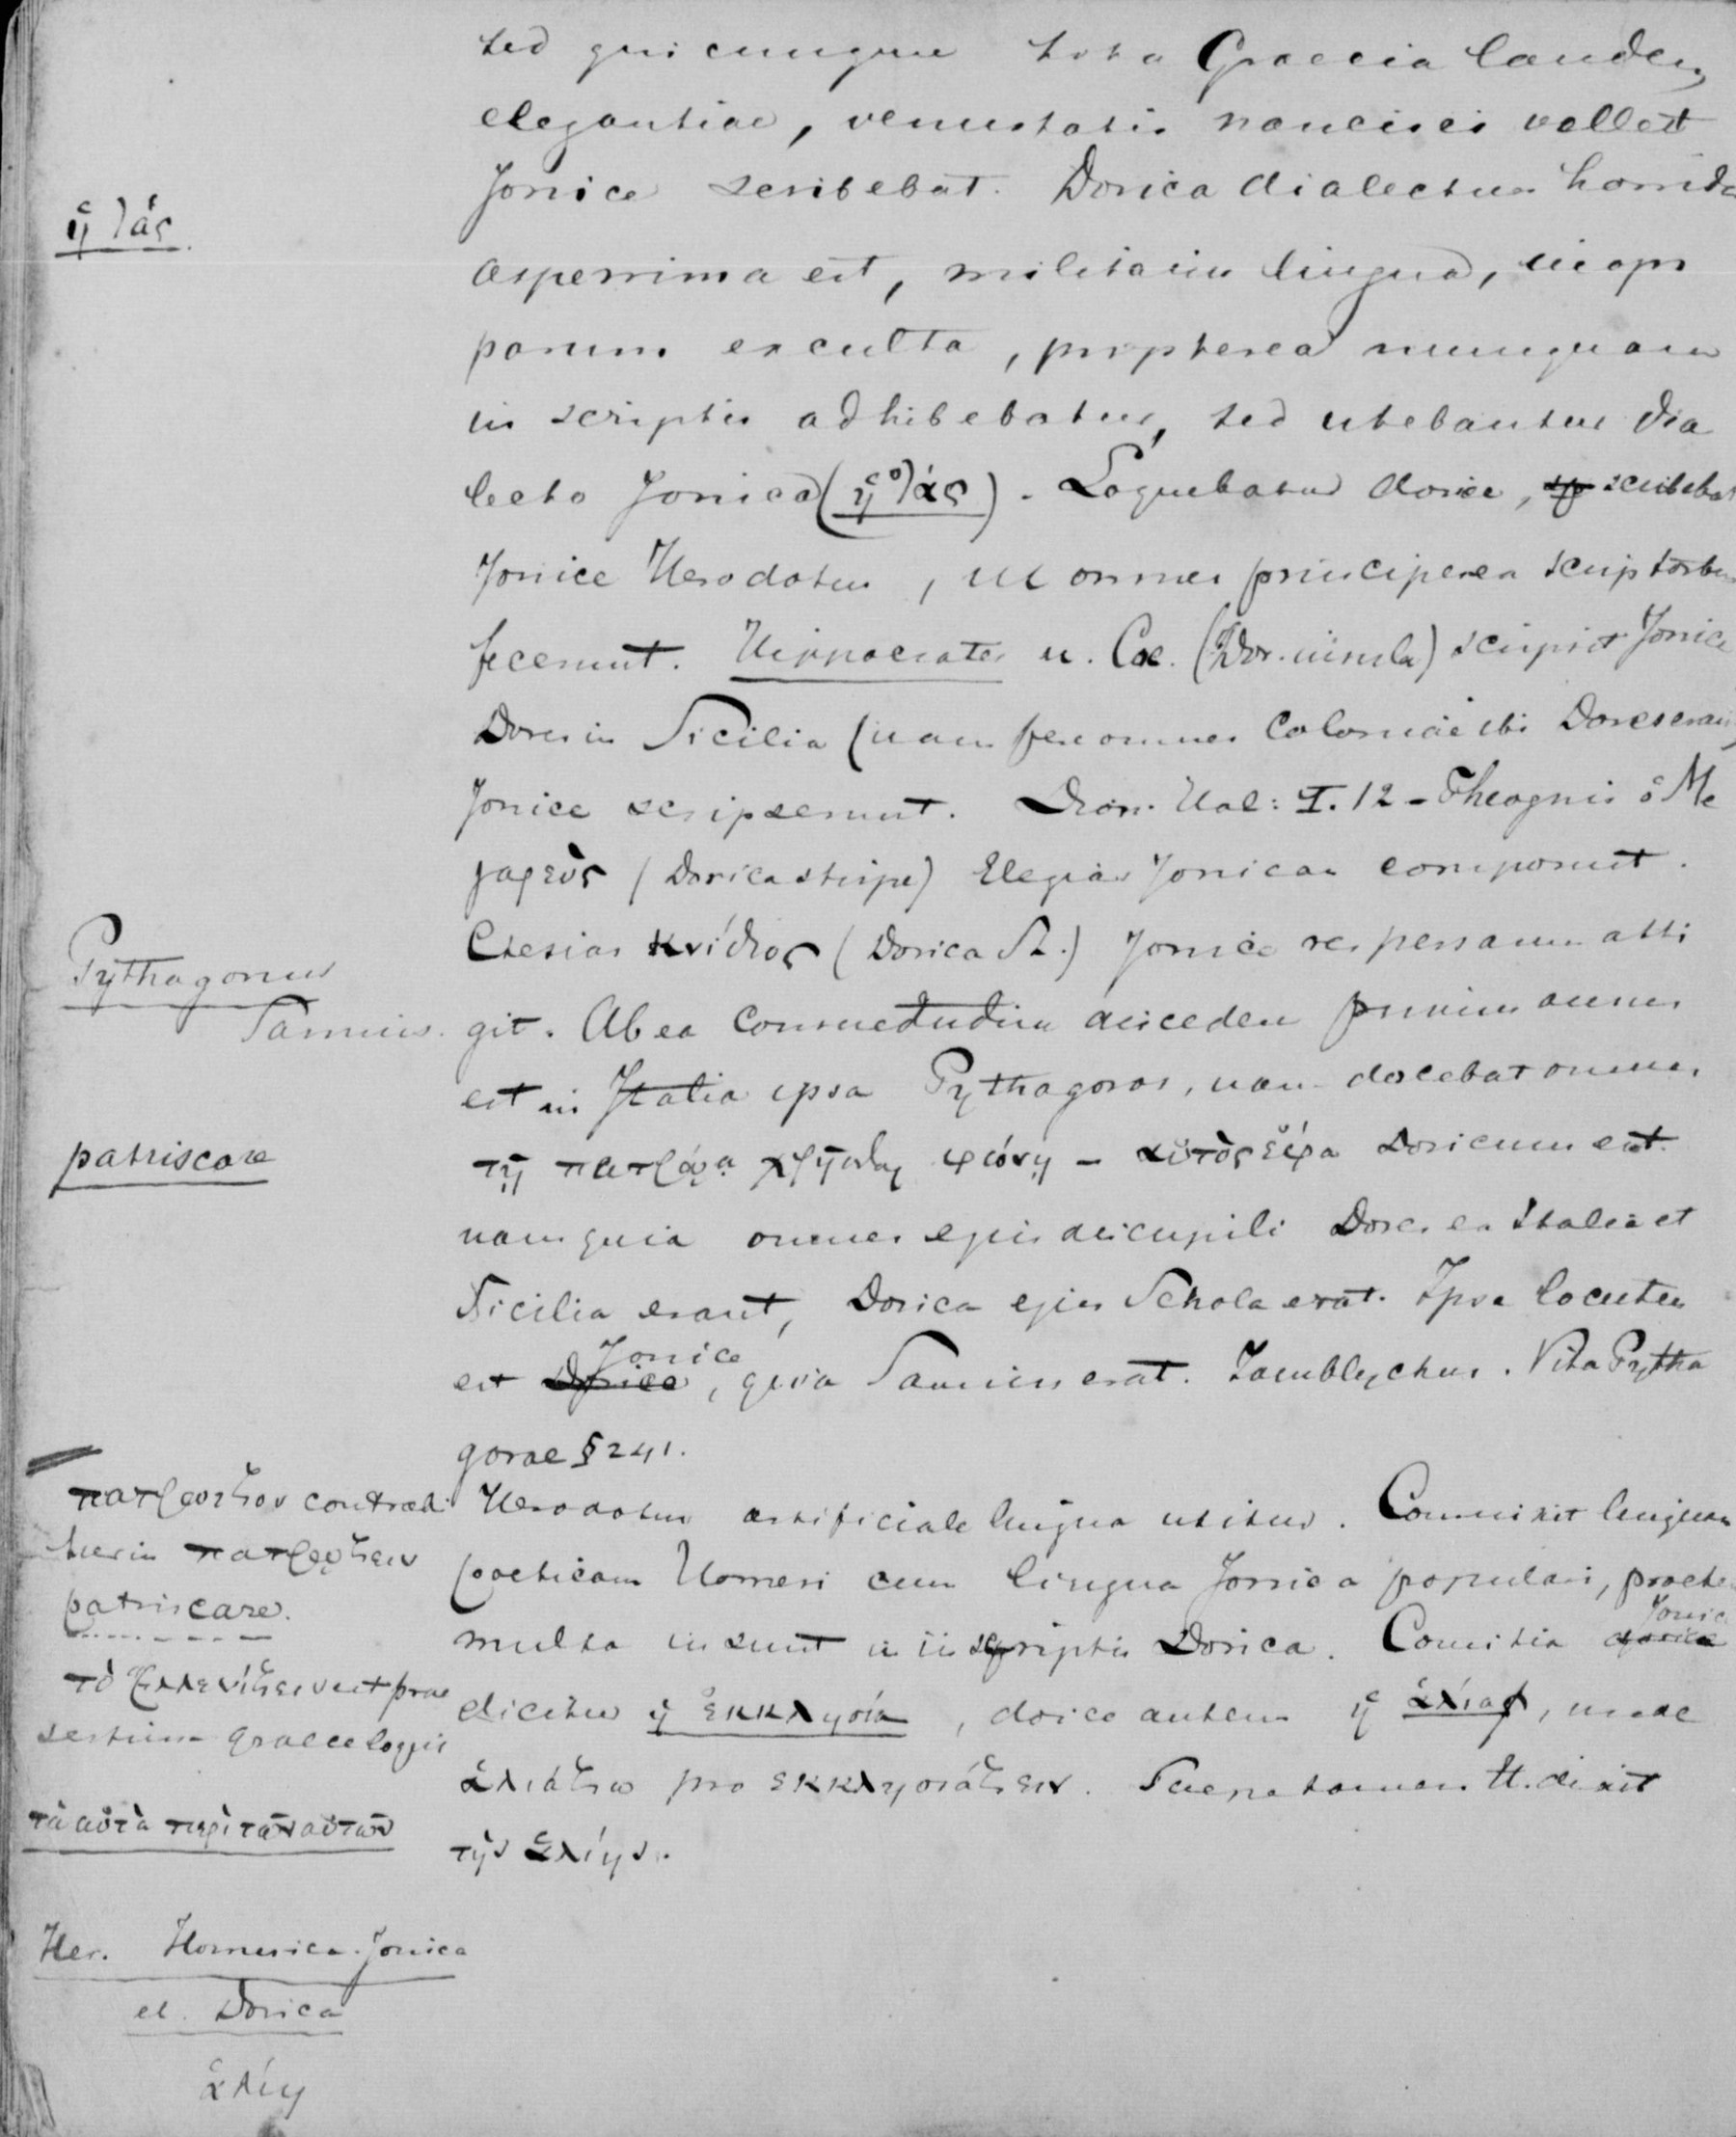 sed quicunque tota Graecia laudem
elegantiae, venustatis nancisci vellet
Jonice scribebat. Dorica dialectus horrida
ἡ Ἰάς
asperrima est, militaris lingua, inops
parum exculta, propterea nunquam
in scriptis adhibebatur, sed utebantur dia
lecto Jonica (ἡ Ἰάς). Loquebatur dorice, scribebat
Jonice Herodotus, ut omnes principes scriptores
fecerunt. Hippocrates Coe. (Dor. insula) scripsit Jonice
Dores in Sicilia (nam fere omnes Coloniae ibi Dores erant)
Jonice scripserunt. Dion. Hal: I. 12 - Theognis ὁ Με
γαρεὺς (Dorica stirpe) Elegias Jonicas composuit.
Ctesias Κνίδιος (Dorica St.) Jonice res persarum atti
Pythagoras
Samius.
git. Ab ea consuetudine discedere primus ausus
est in Italia ipsa Pythagoras, nam docebat omnes
patriscare
τῇ πατρῴᾳ χρῆσθαι φωνῇ - αὐτὸς ἔφα Doricum est.
nam quia omnes ejus discipuli Dores ex Italia et
Sicilia erant, Dorica ejus Schola erat. Ipse locutus
est Dorice Jonice, quia Samius erat. Iamblychus. Vita Pytha
gorae § 241.
contradi
tur in
patriscare.
τὸ est prae
sertim graece loqui
τὰ αὐτὰ περὶ τῶν αὐτῶν
Her. Homerica. Jonica
et. Dorica
ἁλίη
Herodotus artificiale lingua utitur. Commixit linguam
poeticam Homeri cum lingua Jonica populari, praeter
multa insunt in scriptis Dorica. Comitia dorice Jonice
dicitur ἡ ἐκκλησία, dorice autem ἡ ἁλία, unde
ἁλιάζω pro ἐκκλησιάζειν. Saepe tamen H. dixit
τὴν ἁλίην.